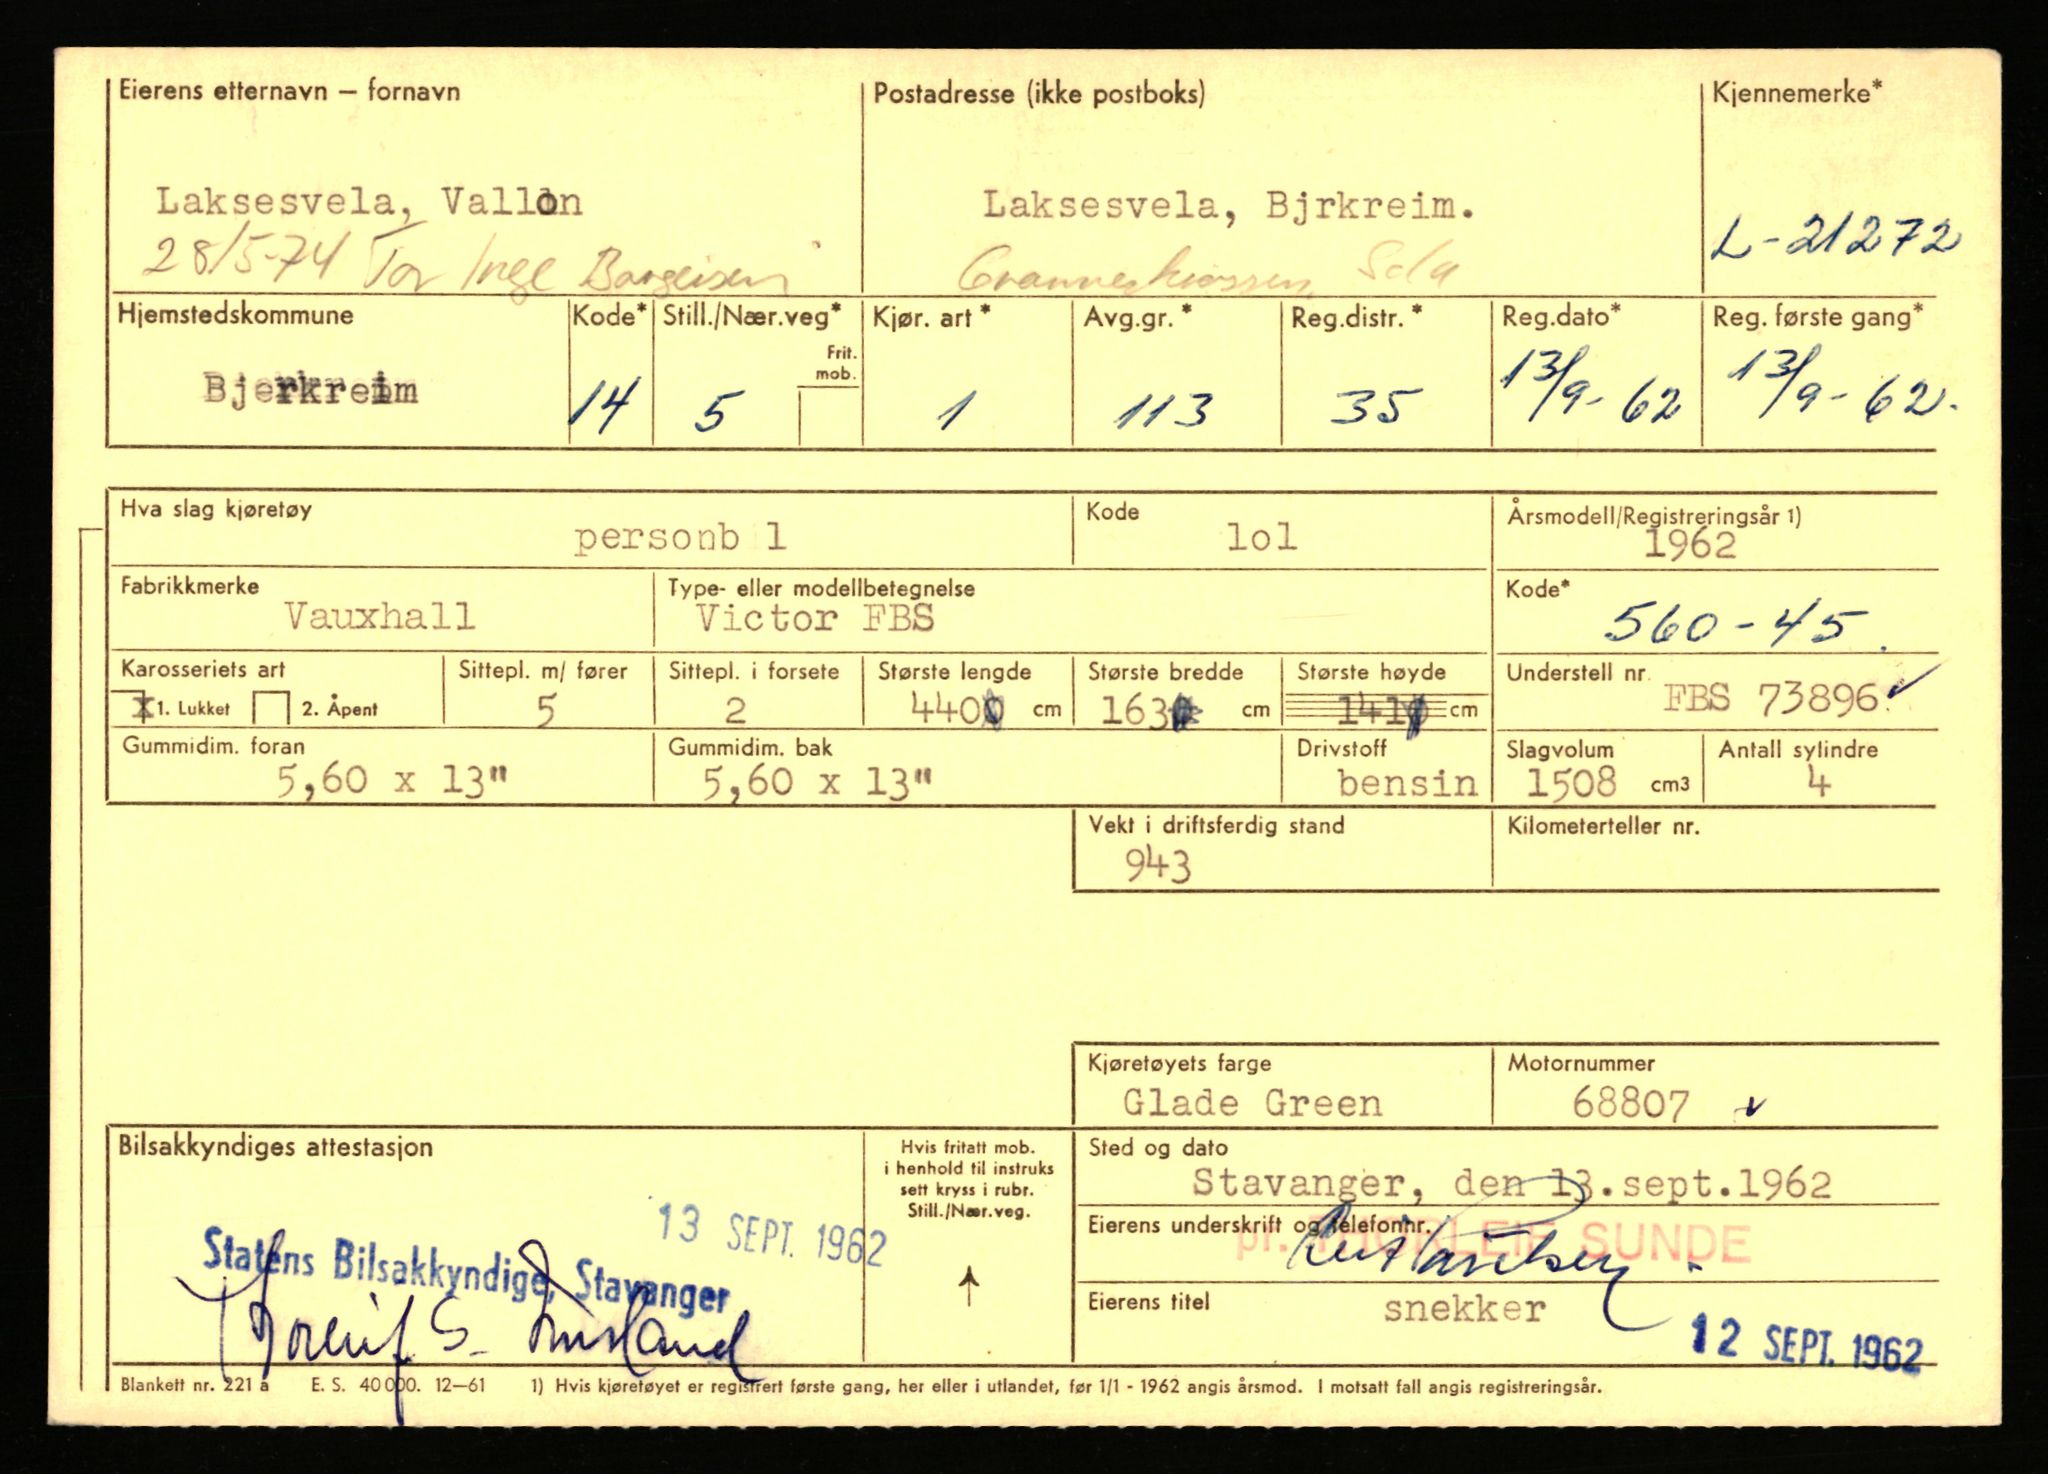 Eierens etternavn – fornavn
Postadresse (ikke postboks)
Kjennemerke*
Laksesvela, Vallon
Laksesvela, Bjrkreim.
L-21272
28/5-74 Tor Inge
Sola
Hjemstedskommune
Kode*
Still./Nær.veg*
Frit. mob.
Kjør. art *
Avg.gr. *
Reg.distr. *
Reg.dato*
Reg. første gang*
Bjerkreim
14
5
1
113
35
13/9-62
13/9-62.
Hva slag kjøretøy
personb l
Kode
lol
Årsmodell/Registreringsår 1)
1962
Fabrikkmerke
Vauxhall
Type- eller modellbetegnelse
Victor FBS
Kode*
560-45.
Karosseriets art
x 1. Lukket 2. Åpent
Sittepl. m/ fører
5
Sittepl. i forsete
2
Største lengde
440 cm
Største bredde
163 cm
Største høyde
141 cm
Understell nr.
FBS 73896
Gummidim. foran
5,60 x 13"
Gummidim. bak
5,60 x 13"
Drivstoff
bensin
Slagvolum
1508 cm3
Antall sylindre
4
Vekt i driftsferdig stand
943
Kilometerteller nr.
Kjøretøyets farge
Glade Green
Motornummer
68807
Bilsakkyndiges attestasjon
Hvis fritatt mob.
i henhold til instruks
sett kryss i rubr.
Still./Nær.veg.
13 SEPT. 1962
Statens Bilsakkyndige, Stavanger
Sted og dato
Stavanger, den 13.sept.1962
Eierens underskrift og telefonnr.
pr. THORLEIF SUNDE
Eierens titel
snekker
12 SEPT. 1962
Blankett nr. 221 a E. S. 40 000. 12–61 1) Hvis kjøretøyet er registrert første gang, her eller i utlandet, før 1/1 - 1962 angis årsmod. I motsatt fall angis registreringsår.